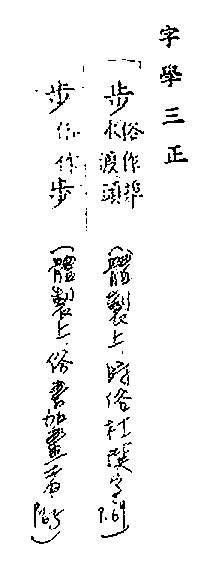 字學三正
步 俗作埠
水渡頭 (體製上.時俗杜撰字 P.69)
步 俗作步 (體製上.俗書加畫者 P.65)